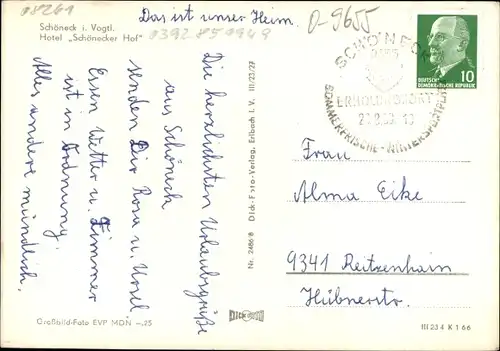 08261
Das ist unser Heim.
D-9655
Schöneck i. Vogtl.
Hotel „Schönecker Hof"
0392859949
Die herzlichsten Urlaubsgrüße
aus Schöneck
senden Dir Rosa u. Ursel
Essen Wetter u. Zimmer
ist in Ordnung.
Alles andere mündlich.
Nr. 2486/8 Dick-Foto-Verlag, Erlbach i. V. III/23/27
SCHÖNECK
ERHOLUNGSORT
SOMMERFRISCHE - WINTERSPORTPLATZ
DEUTSCHE
DEMOKRATISCHE REPUBLIK
10
Frau
Alma Eike
9341 Reitzenhain
Hübnerstr.
Großbild-Foto EVP MDN -,25
III 23 4 K 1 66